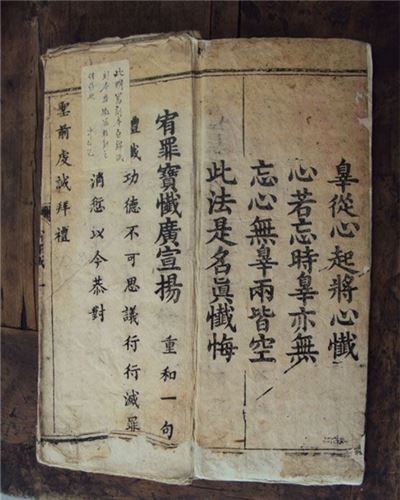 辠從心起將心懺
心若忘時辠亦無
忘心無辠兩皆空
此法是名眞懺悔
宥罪寶懺廣宣揚 重和一句
禮懺功德不可思議行行滅罪
消愆以今恭對
聖前虔誠拜禮